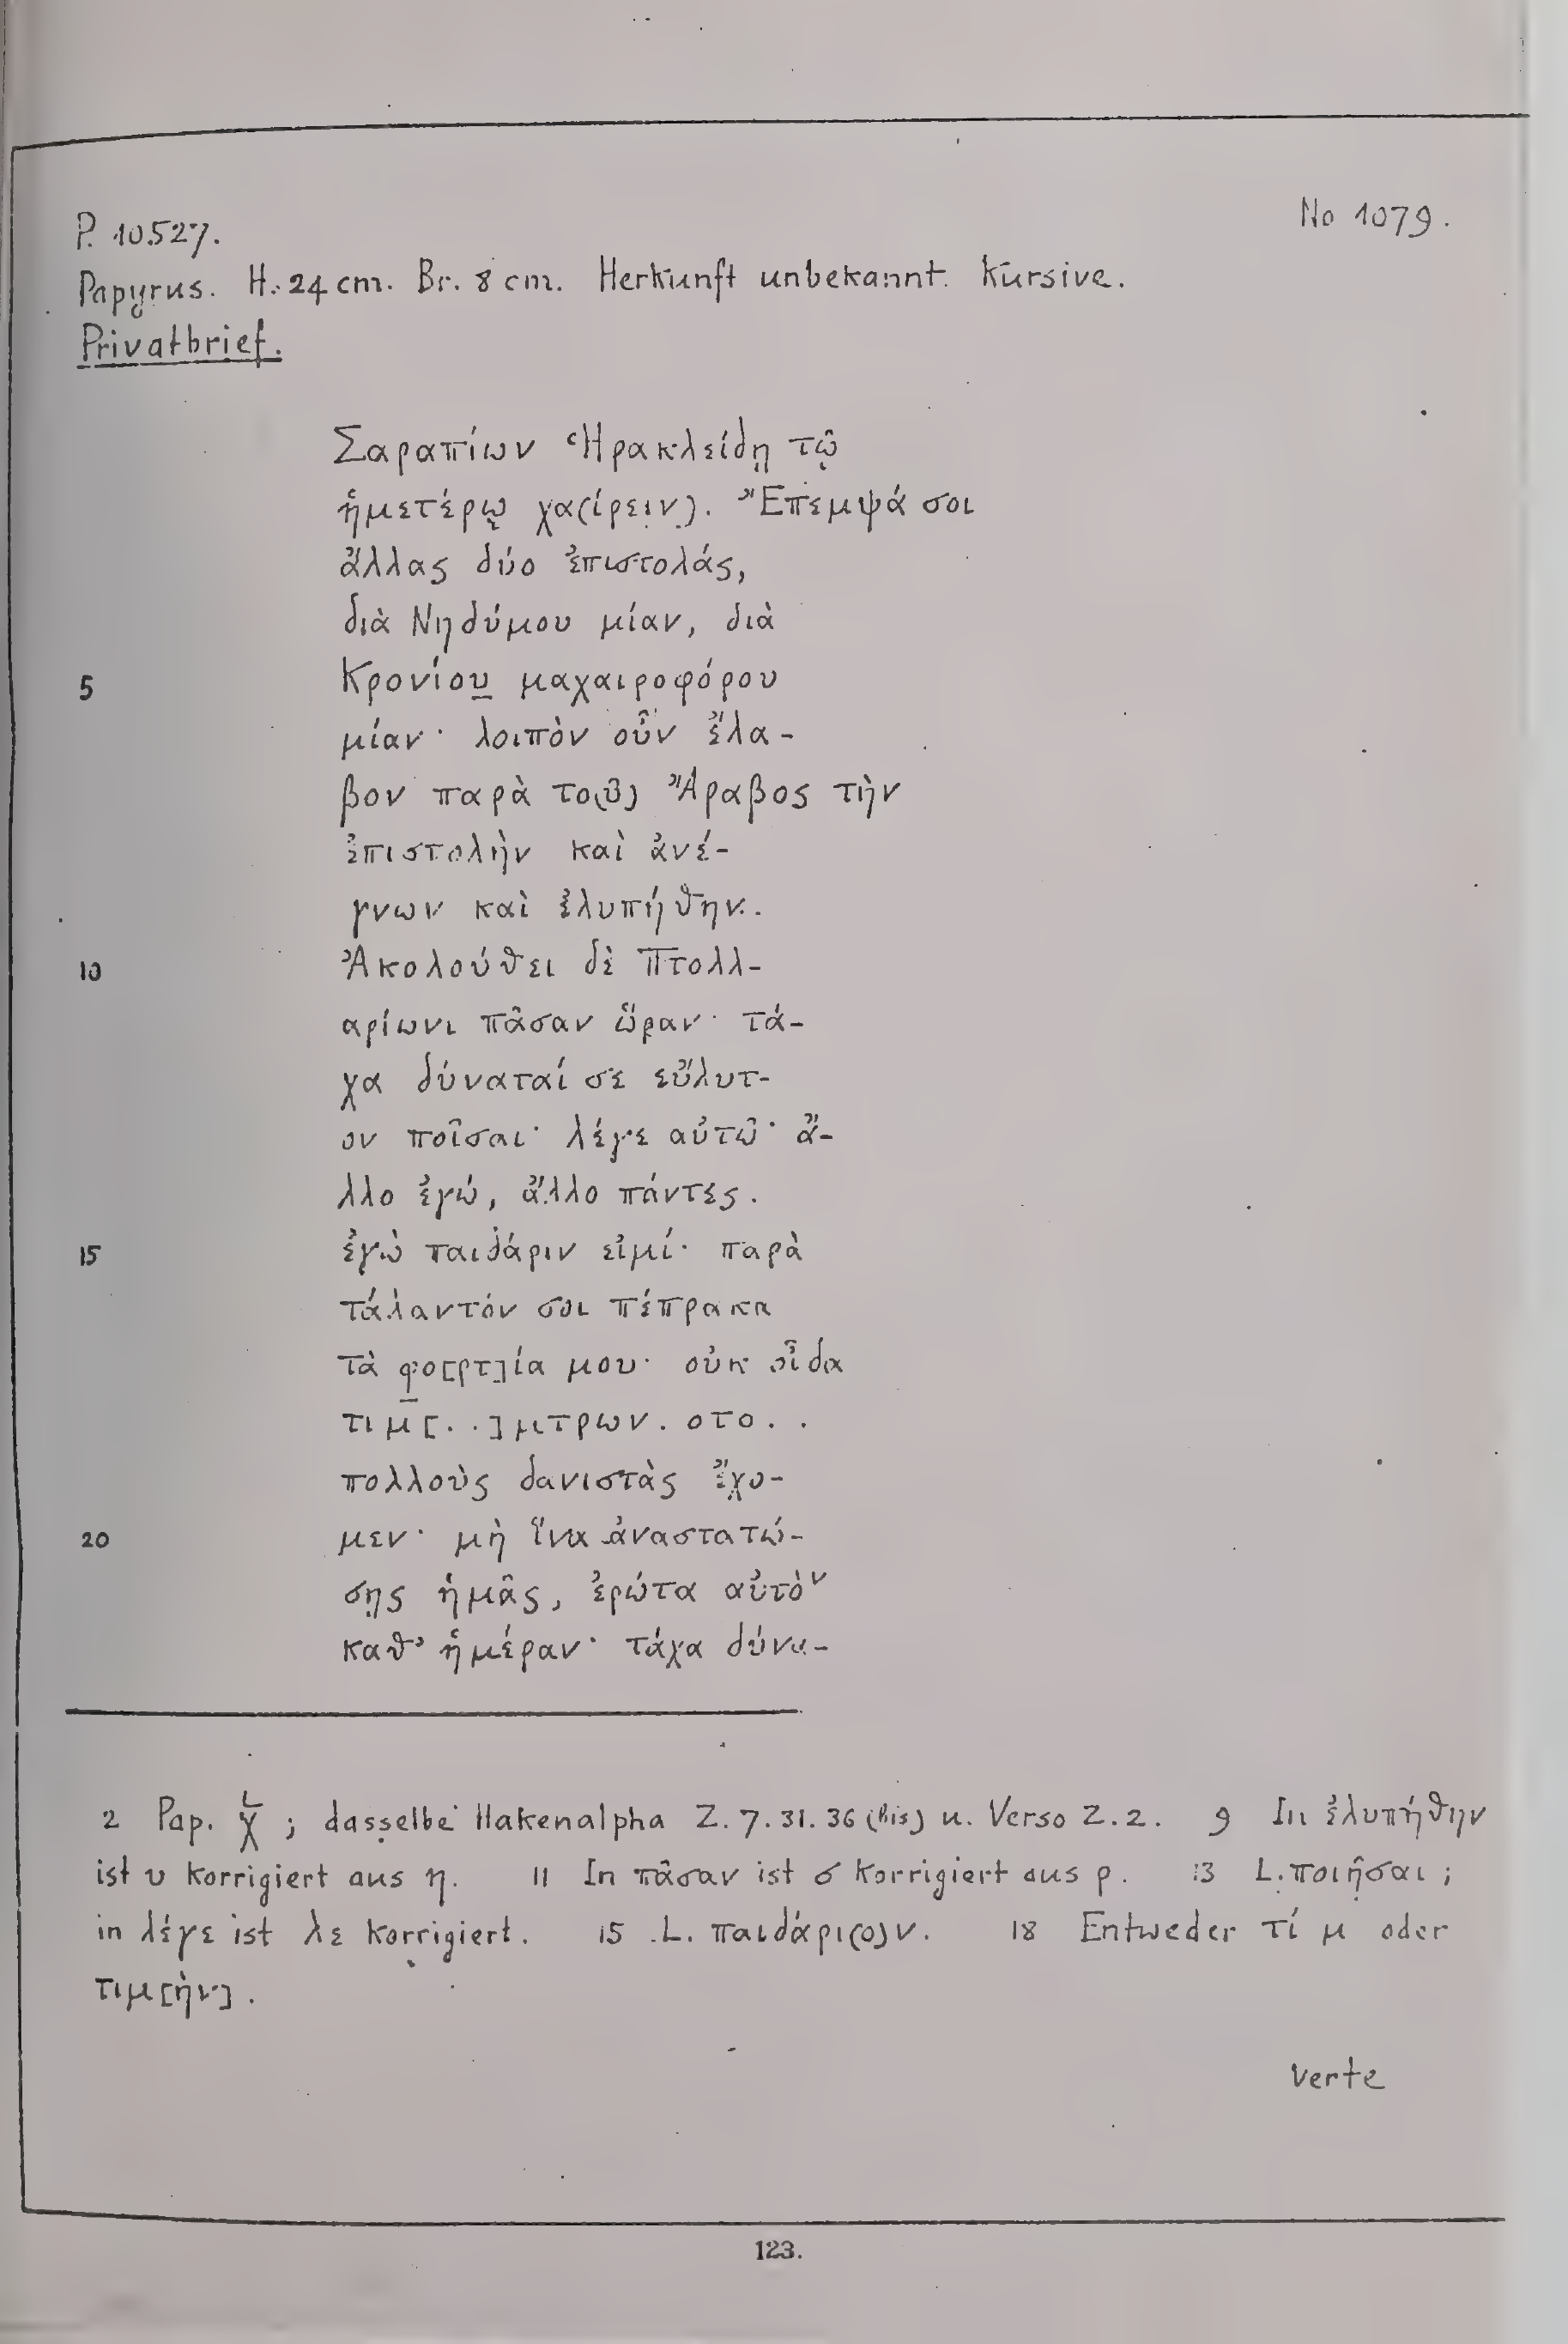 No 1079.
P. 10527.
Papyrus. H. 24 cm. Br. 8 cm. Herkunft unbekannt. Kursive.
Privatbrief.
Σαραπίων Ἡρακλείδῃ τῷ
ἡμετέρῳ χα(ίρειν). Ἔπεμψά σοι
ἄλλας δύο ἐπιστολάς,
διὰ Νηδύμου μίαν, διὰ
5 Κρονίου̲ μαχαιροφόρου
μίαν· λοιπὸν οὖν ἔλα-
βον παρὰ το(ῦ) Ἄραβος τὴν
ἐπιστολὴν καὶ ἀνέ-
γνων καὶ ἐλυπήθην.
10 Ἀκολούθει δὲ Πτολλ-
αρίωνι πᾶσαν ὥραν· τά-
χα δύναταί σε εὔλυτ-
ον ποῖσαι· λέγε αὐτῷ· ἄ-
λλο ἐγώ, ἄλλο πάντες.
15 ἐγὼ παιδάριν εἰμί· παρὰ
τάλαντόν σοι πέπρακα
τὰ φο[ρτ]ία μου· οὐκ οἶδα
τι μ[. .]μτρων. οτο. .
πολλοὺς δανιστὰς ἔχο-
20 μεν· μὴ ἵνα ἀναστατώ-
σῃς ἡμᾶς, ἐρώτα αὐτὸν
καθ’ ἡμέραν· τάχα δύνα-
2 Pap. χ̔; dasselbe Hakenalpha Z. 7. 31. 36 (bis) u. Verso Z. 2. 9 In ἐλυπήθην
ist υ korrigiert aus η. 11 In πᾶσαν ist σ korrigiert aus ρ. 13 L. ποιῆσαι;
in λέγε ist λε korrigiert. 15 L. παιδάρι(ο)ν. 18 Entweder τί μ oder
τιμ[ὴν].
verte
123.